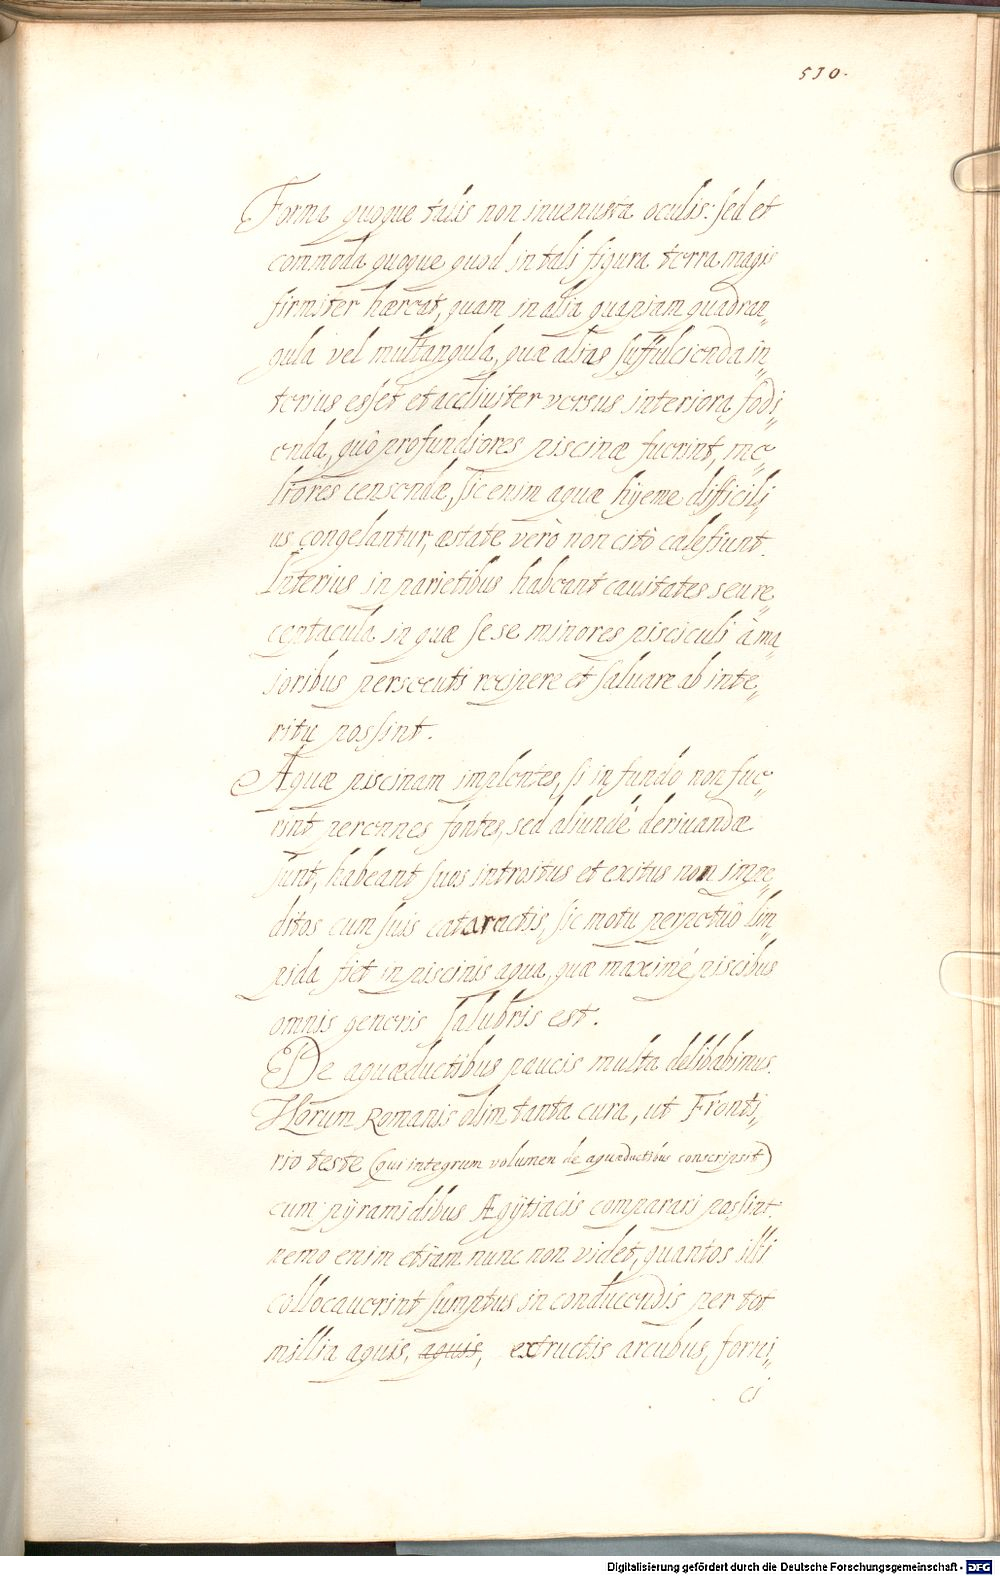 530.
Forma quoque talis non inuenusta oculis: sed et
commoda quoque quod in tali figura terra magis
firmiter hæreat, quam in alia quapiam quadran„
gula vel multangula, quæ alias suffulcienda in„
terius esset et accliuiter versus interiora fodi„
enda, quò profundiores piscinæ fuerint, me„
liores censendæ, sic enim aquæ hyeme difficili„
us congelantur, æstate verò non citò calefiunt.
Interius in parietibus habeant cauitates seu re„
ceptacula in quæ sese minores pisciculi à ma„
ioribus persecuti recipere et saluare ab inte„
ritu possint.
Aquæ piscinam implentes, si in fundo non fue„
rint perennes fontes, sed aliundè deriuandæ
sunt, habeant suos introitus et exitus non impe„
ditos cum suis cataractis, sic motu perpetuò lim„
pida fiet in piscinis aqua, quæ maximè piscibus
omnis generis salubris est.
De aquæductibus paucis multa delibabimus.
Horum Romanis olim tanta cura, ut Fronti„
rio teste (qui integrum volumen de aquæductibus conscripsit)
cum pÿramidibus Ægÿtiacis comparari possint.
nemo enim etiam nunc non videt, quantos illi
collocauerint sumptus in conducendis per tot
millia aquis, aquis, extructis arcubus, forni„
ci
Digitalisierung gefördert durch die Deutsche Forschungsgemeinschaft - DFG